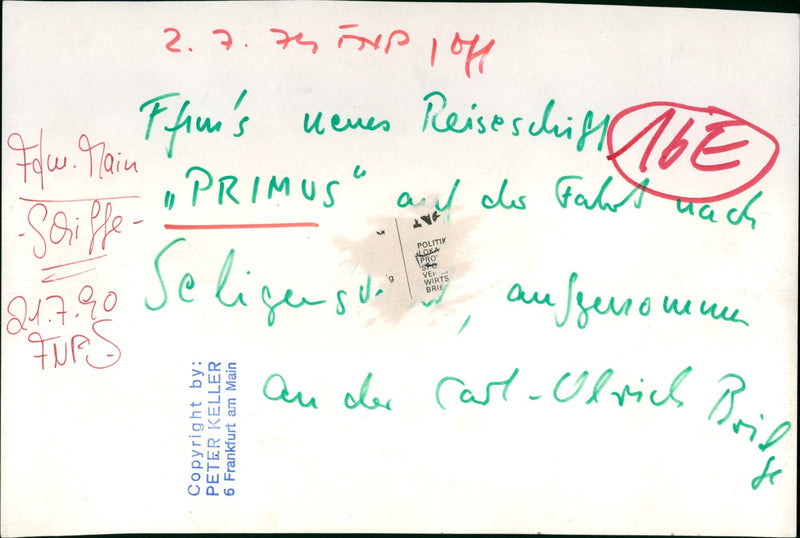 2. 7. 74 FNP
Ffm's neues Reiseschiff
16E
„PRIMUS“ auf der Fahrt nach
Seligenst, aufgenommen
an der Carl-Ulrich Brücke
Ffm. Main
- Schiffe -
21.7.90
FNP
POLITIK
LOKA
PRO
SPO
WIRTS
BRIE
Copyright by:
PETER KELLER
6 Frankfurt am Main